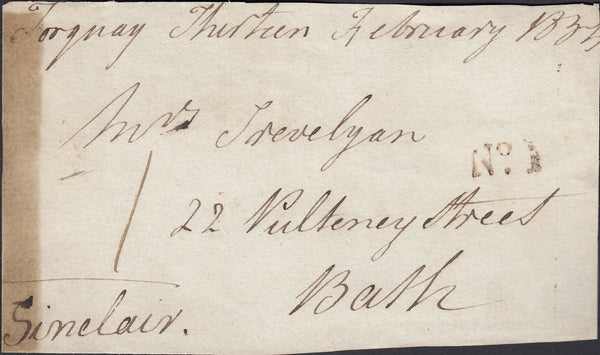 Torquay Thirteen February 1834
Mrs Trevelyan
No. 1
22 Pulteney Street
Bath
Sinclair.